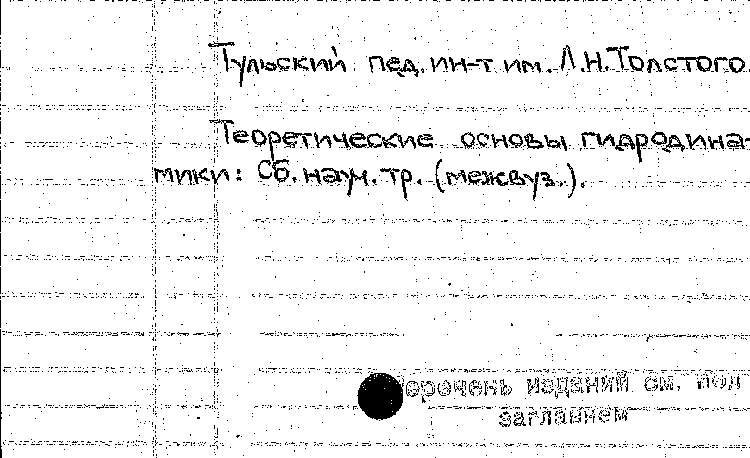 Тульский пед. ин-т им. Л.Н.Толстого.
Теоретические основы гидродина-
мики: Сб. науч. тр. (межвуз.).
Перечень изданий см. под
заглавием